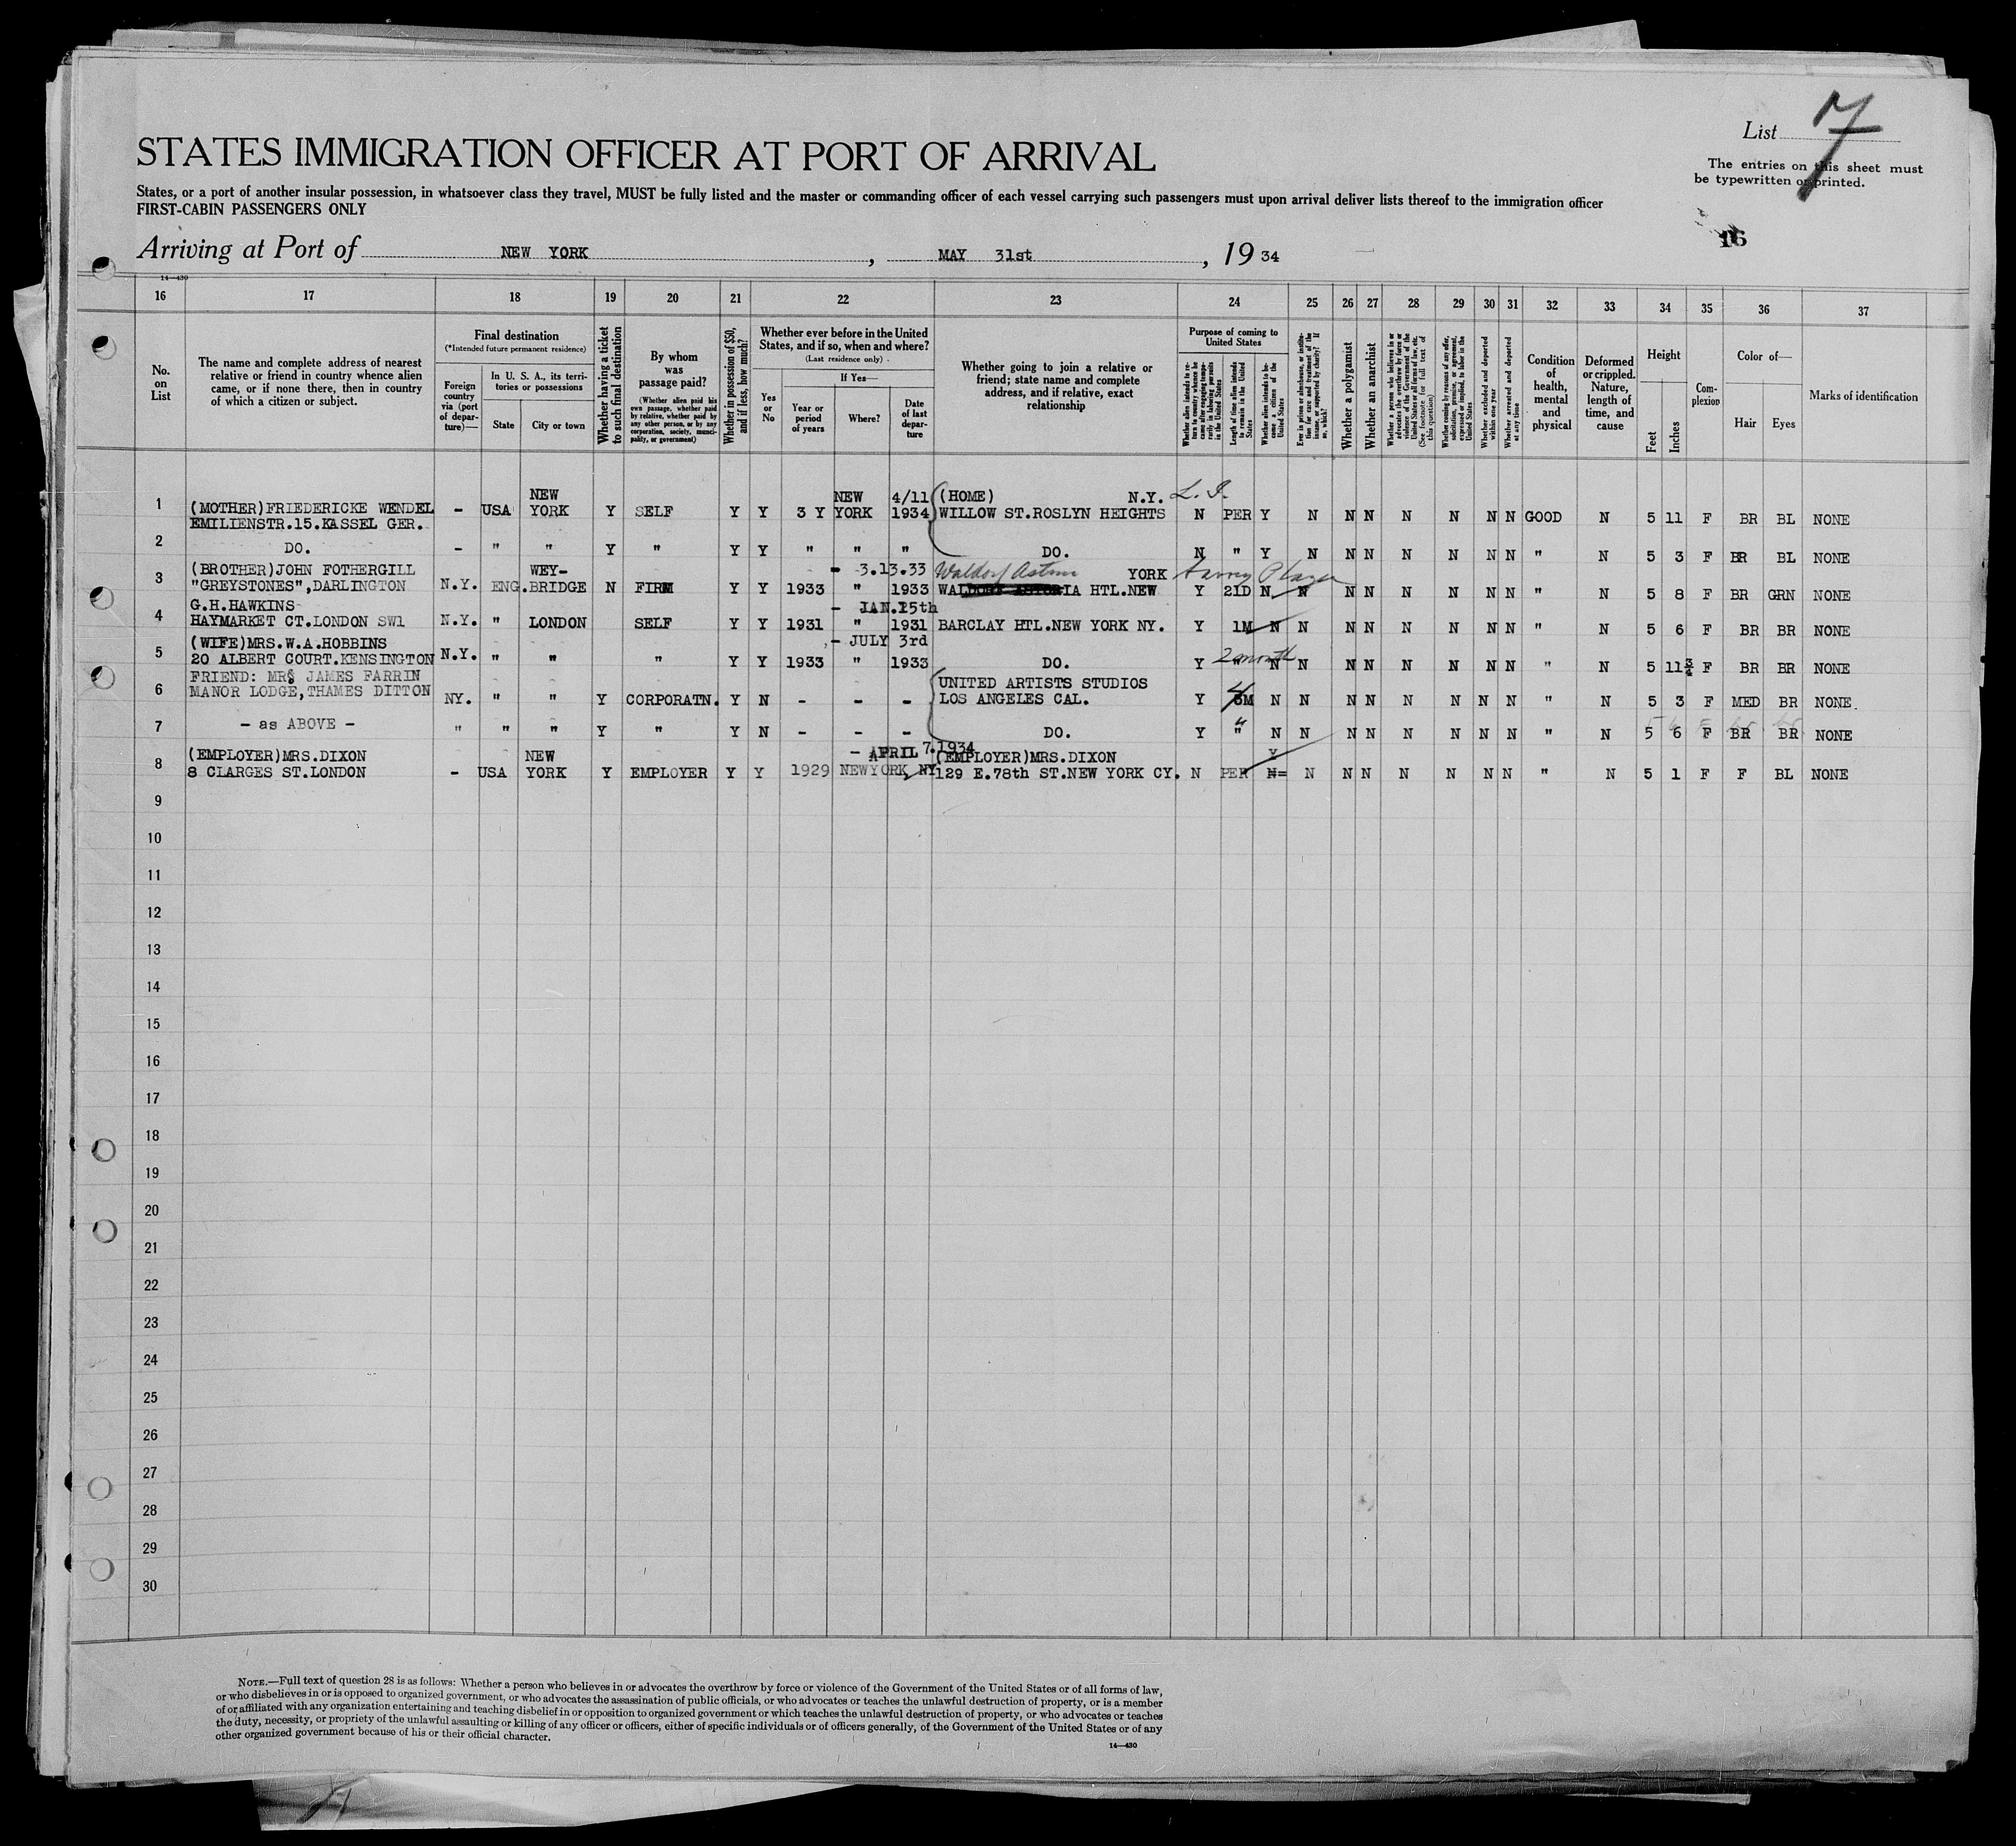 List 7
STATES IMMIGRATION OFFICER AT PORT OF ARRIVAL
The entries on this sheet must
be typewritten or printed.
States, or a port of another insular possession, in whatsoever class they travel, MUST be fully listed and the master or commanding officer of each vessel carrying such passengers must upon arrival deliver lists thereof to the immigration officer
FIRST-CABIN PASSENGERS ONLY
16
Arriving at Port of NEW YORK, MAY 31st, 19 34
14—430
16 17 18 19 20 21 22 23 24 25 26 27 28 29 30 31 32 33 34 35 36 37
No. on List
The name and complete address of nearest relative or friend in country whence alien came, or if none there, then in country of which a citizen or subject.
Final destination
(*Intended future permanent residence)
Foreign country via (port of departure)—
In U. S. A., its territories or possessions
State
City or town
Whether having a ticket to such final destination
By whom was passage paid?
(Whether alien paid his own passage, whether paid by relative, whether paid by any other person, or by any corporation, society, municipality, or government)
Whether in possession of $50, and if less, how much?
Whether ever before in the United States, and if so, when and where?
(Last residence only)
Yes or No
If Yes—
Year or period of years
Where?
Date of last departure
Whether going to join a relative or friend; state name and complete address, and if relative, exact relationship
Purpose of coming to United States
Whether alien intends to return to country whence he came after engaging temporarily in laboring pursuits in the United States
Length of time alien intends to remain in the United States
Whether alien intends to become a citizen of the United States
Ever in prison or almshouse, or institution for care and treatment of the insane, or supported by charity? If so, which?
Whether a polygamist
Whether an anarchist
Whether a person who believes in or advocates the overthrow by force or violence of the Government of the United States or all forms of law, etc. (See footnote for full text of this question)
Whether coming by reasons of any offer, solicitation, promise, or agreement, expressed or implied, to labor in the United States
Whether excluded and deported within one year
Whether arrested and deported at any time
Condition of health, mental and physical
Deformed or crippled. Nature, length of time, and cause
Height
Feet
Inches
Complexion
Color of—
Hair
Eyes
Marks of identification
NEW NEW 4/11 (HOME) N.Y. L. I.
1 (MOTHER)FRIEDERICKE WENDEL - USA YORK Y SELF Y Y 3 Y YORK 1934 WILLOW ST.ROSLYN HEIGHTS N PER Y N N N N N N N GOOD N 5 11 F BR BL NONE
EMILIENSTR.15.KASSEL GER.
2 DO. - " " Y " Y Y " " " DO. N " Y N N N N N N N " N 5 3 F BR BL NONE
(BROTHER)JOHN FOTHERGILL WEY- - 3.13.33 Waldorf Astoria YORK Plaza
3 "GREYSTONES",DARLINGTON N.Y. ENG. BRIDGE N FIRM Y Y 1933 " 1933 WALDORF ASTORIA HTL.NEW Y 21D N N N N N N N N " N 5 8 F BR GRN NONE
G.H.HAWKINS - JAN.15th
4 HAYMARKET CT.LONDON SW1 N.Y. " LONDON SELF Y Y 1931 " 1931 BARCLAY HTL.NEW YORK NY. Y 1M N N N N N N N N " N 5 6 F BR BR NONE
(WIFE)MRS.W.A.HOBBINS - JULY 3rd
2 month
5 20 ALBERT COURT.KENSINGTON N.Y. " " " Y Y 1933 " 1933 DO. Y " N N N N N N N N " N 5 11¾ F BR BR NONE
FRIEND: MRS JAMES FARRIN UNITED ARTISTS STUDIOS
6 MANOR LODGE,THAMES DITTON NY. " " Y CORPORATN. Y N - - - LOS ANGELES CAL. Y 4 M N N N N N N N N " N 5 3 F MED BR NONE.
7 - as ABOVE - " " " Y " Y N - - - DO. Y " N N N N N N N N " N 5 6 F BR BR NONE
(EMPLOYER)MRS.DIXON NEW - APRIL 7.1934 (EMPLOYER)MRS.DIXON Y
8 8 CLARGES ST.LONDON - USA YORK Y EMPLOYER Y Y 1929 NEWYORK NY 129 E.78th ST.NEW YORK CY. N PER N= N N N N N N N " N 5 1 F F BL NONE
9
10
11
12
13
14
15
16
17
18
19
20
21
22
23
24
25
26
27
28
29
30
NOTE.—Full text of question 28 is as follows: Whether a person who believes in or advocates the overthrow by force or violence of the Government of the United States or of all forms of law,
or who disbelieves in or is opposed to organized government, or who advocates the assassination of public officials, or who advocates or teaches the unlawful destruction of property, or is a member
of or affiliated with any organization entertaining and teaching disbelief in or opposition to organized government or which teaches the unlawful destruction of property, or who advocates or teaches
the duty, necessity, or propriety of the unlawful assaulting or killing of any officer or officers, either of specific individuals or of officers generally, of the Government of the United States or of any
other organized government because of his or their official character.
14—430